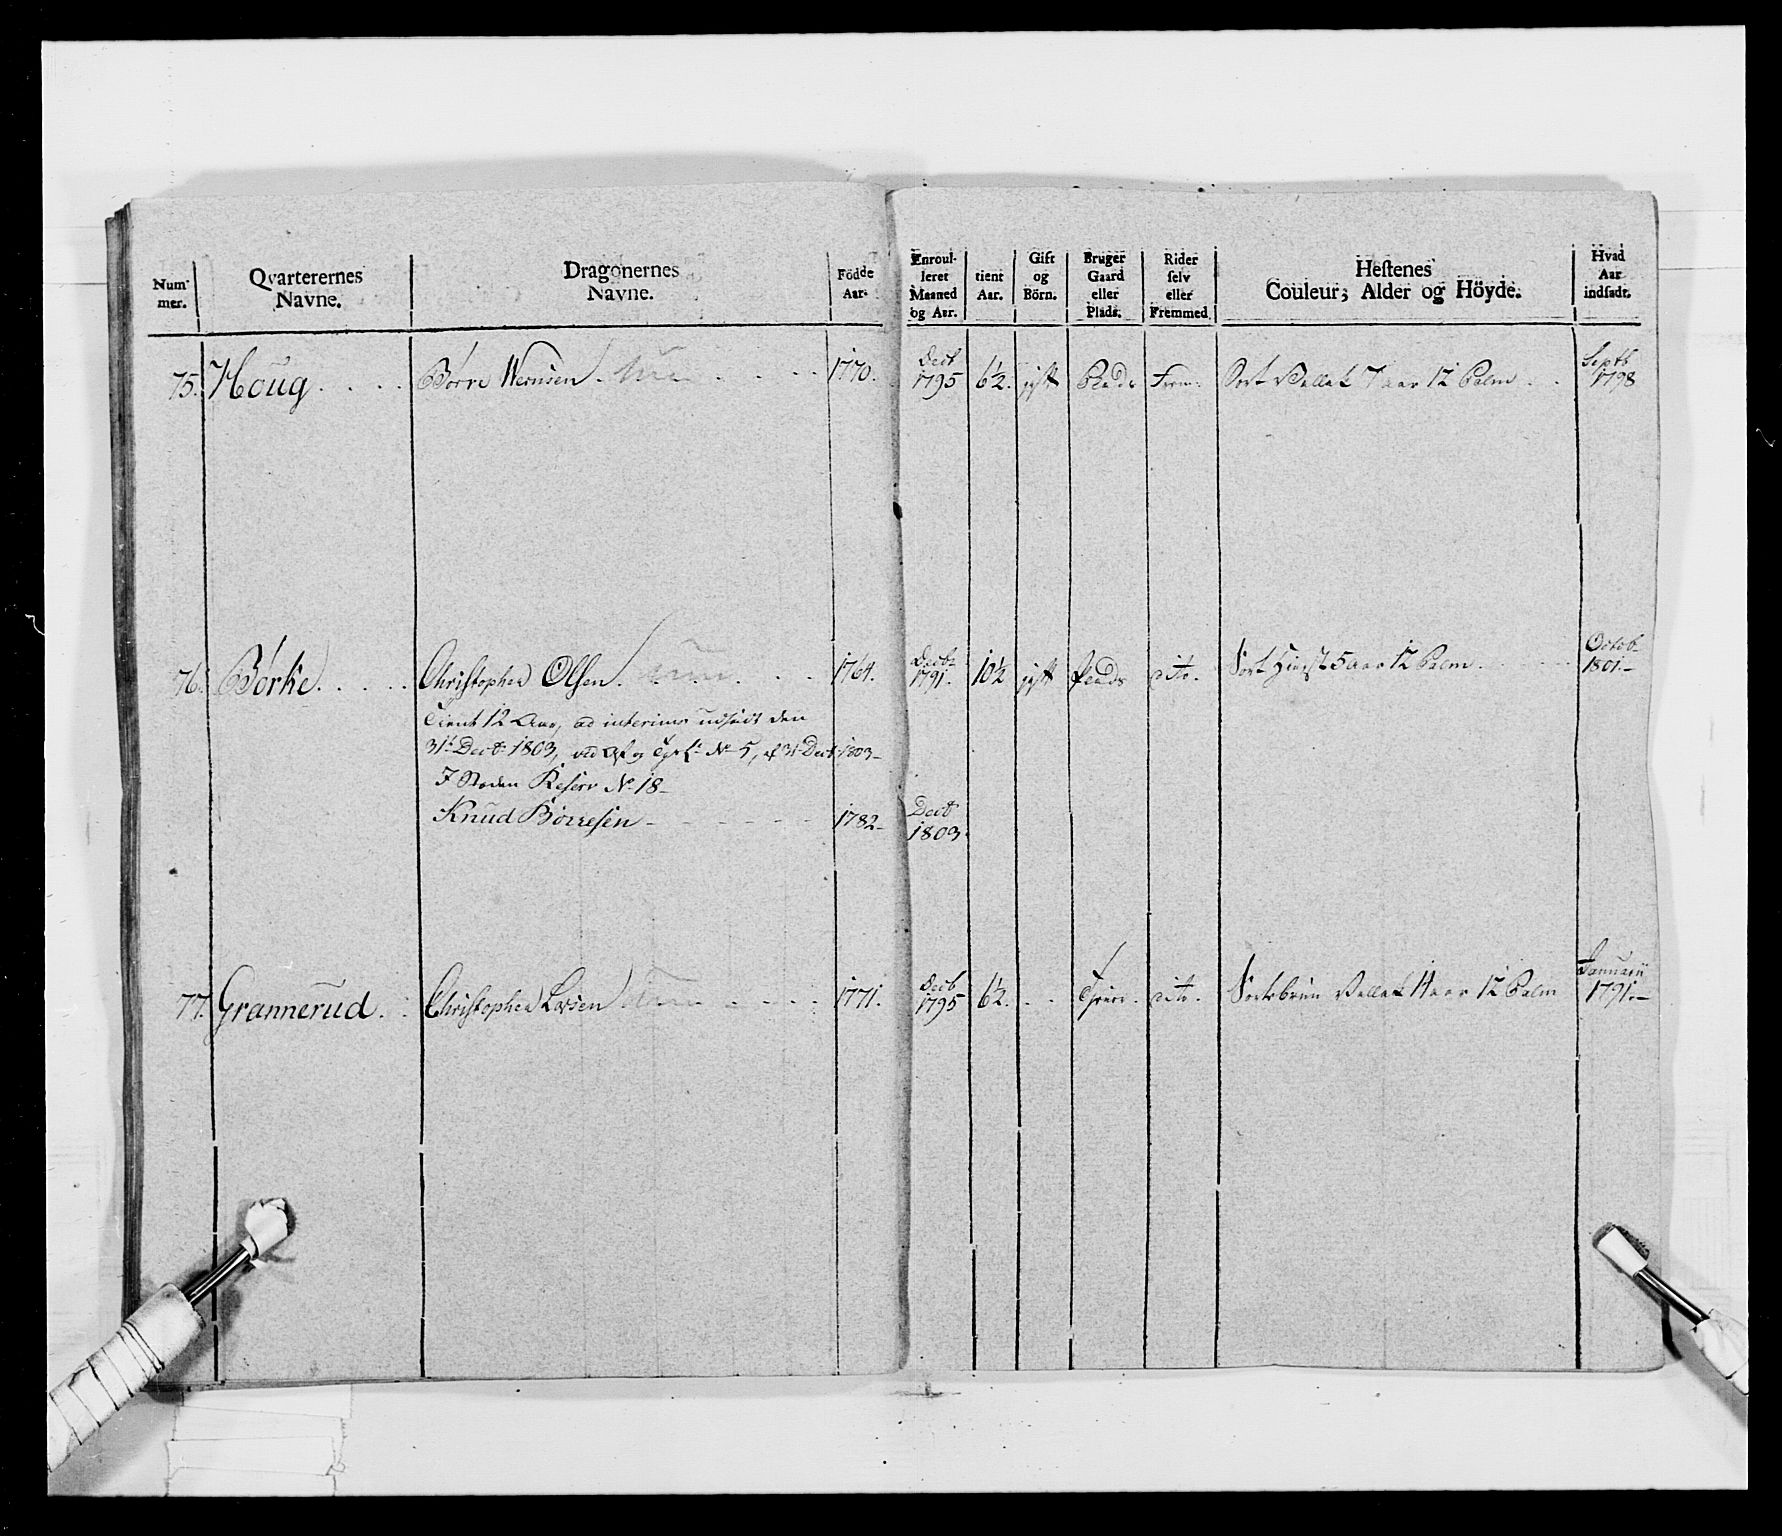 Num-
mer.
Qvarterernes
Navne.
Dragonernes
Navne.
Födde
Aar.
Enroul-
leret
Maaned
og Aar.
tient
Aar.
Gift
og
Börn.
Bruger
Gaard
eller
Plads.
Rider
selv
eller
Fremmed
Hestenes
Couleur, Alder og Höyde.
Hvad
Aar
indsadt.
75. Houg. . . . Börre Wernsen. . . . 1770. Decb 1795 6½. gift Plads Frem: Sort Vallak 7 aar 12 Palm . . Septb 1798
76. Börke. . . . . Christopher Olsen. . . . 1764. Decbr 1791. 10½ gift Plads dito. Sort Hingst 5 aar 12 Palm . . . Octob 1801.-
Tient 12 Aar, ad interims udsadt den
31te Decb 1803, No 5, af 31 Decb 1803-
I Steden Reserv No 18-
Knud Börresen - - - - - 1782- Decb 1803.
77. Grannerud. . . Christopher Larsen . . . . 1771. Decb 1795 6½. . . dito. Sortebrun Vallak 14 aar 12 Palm Januarii 1791.-